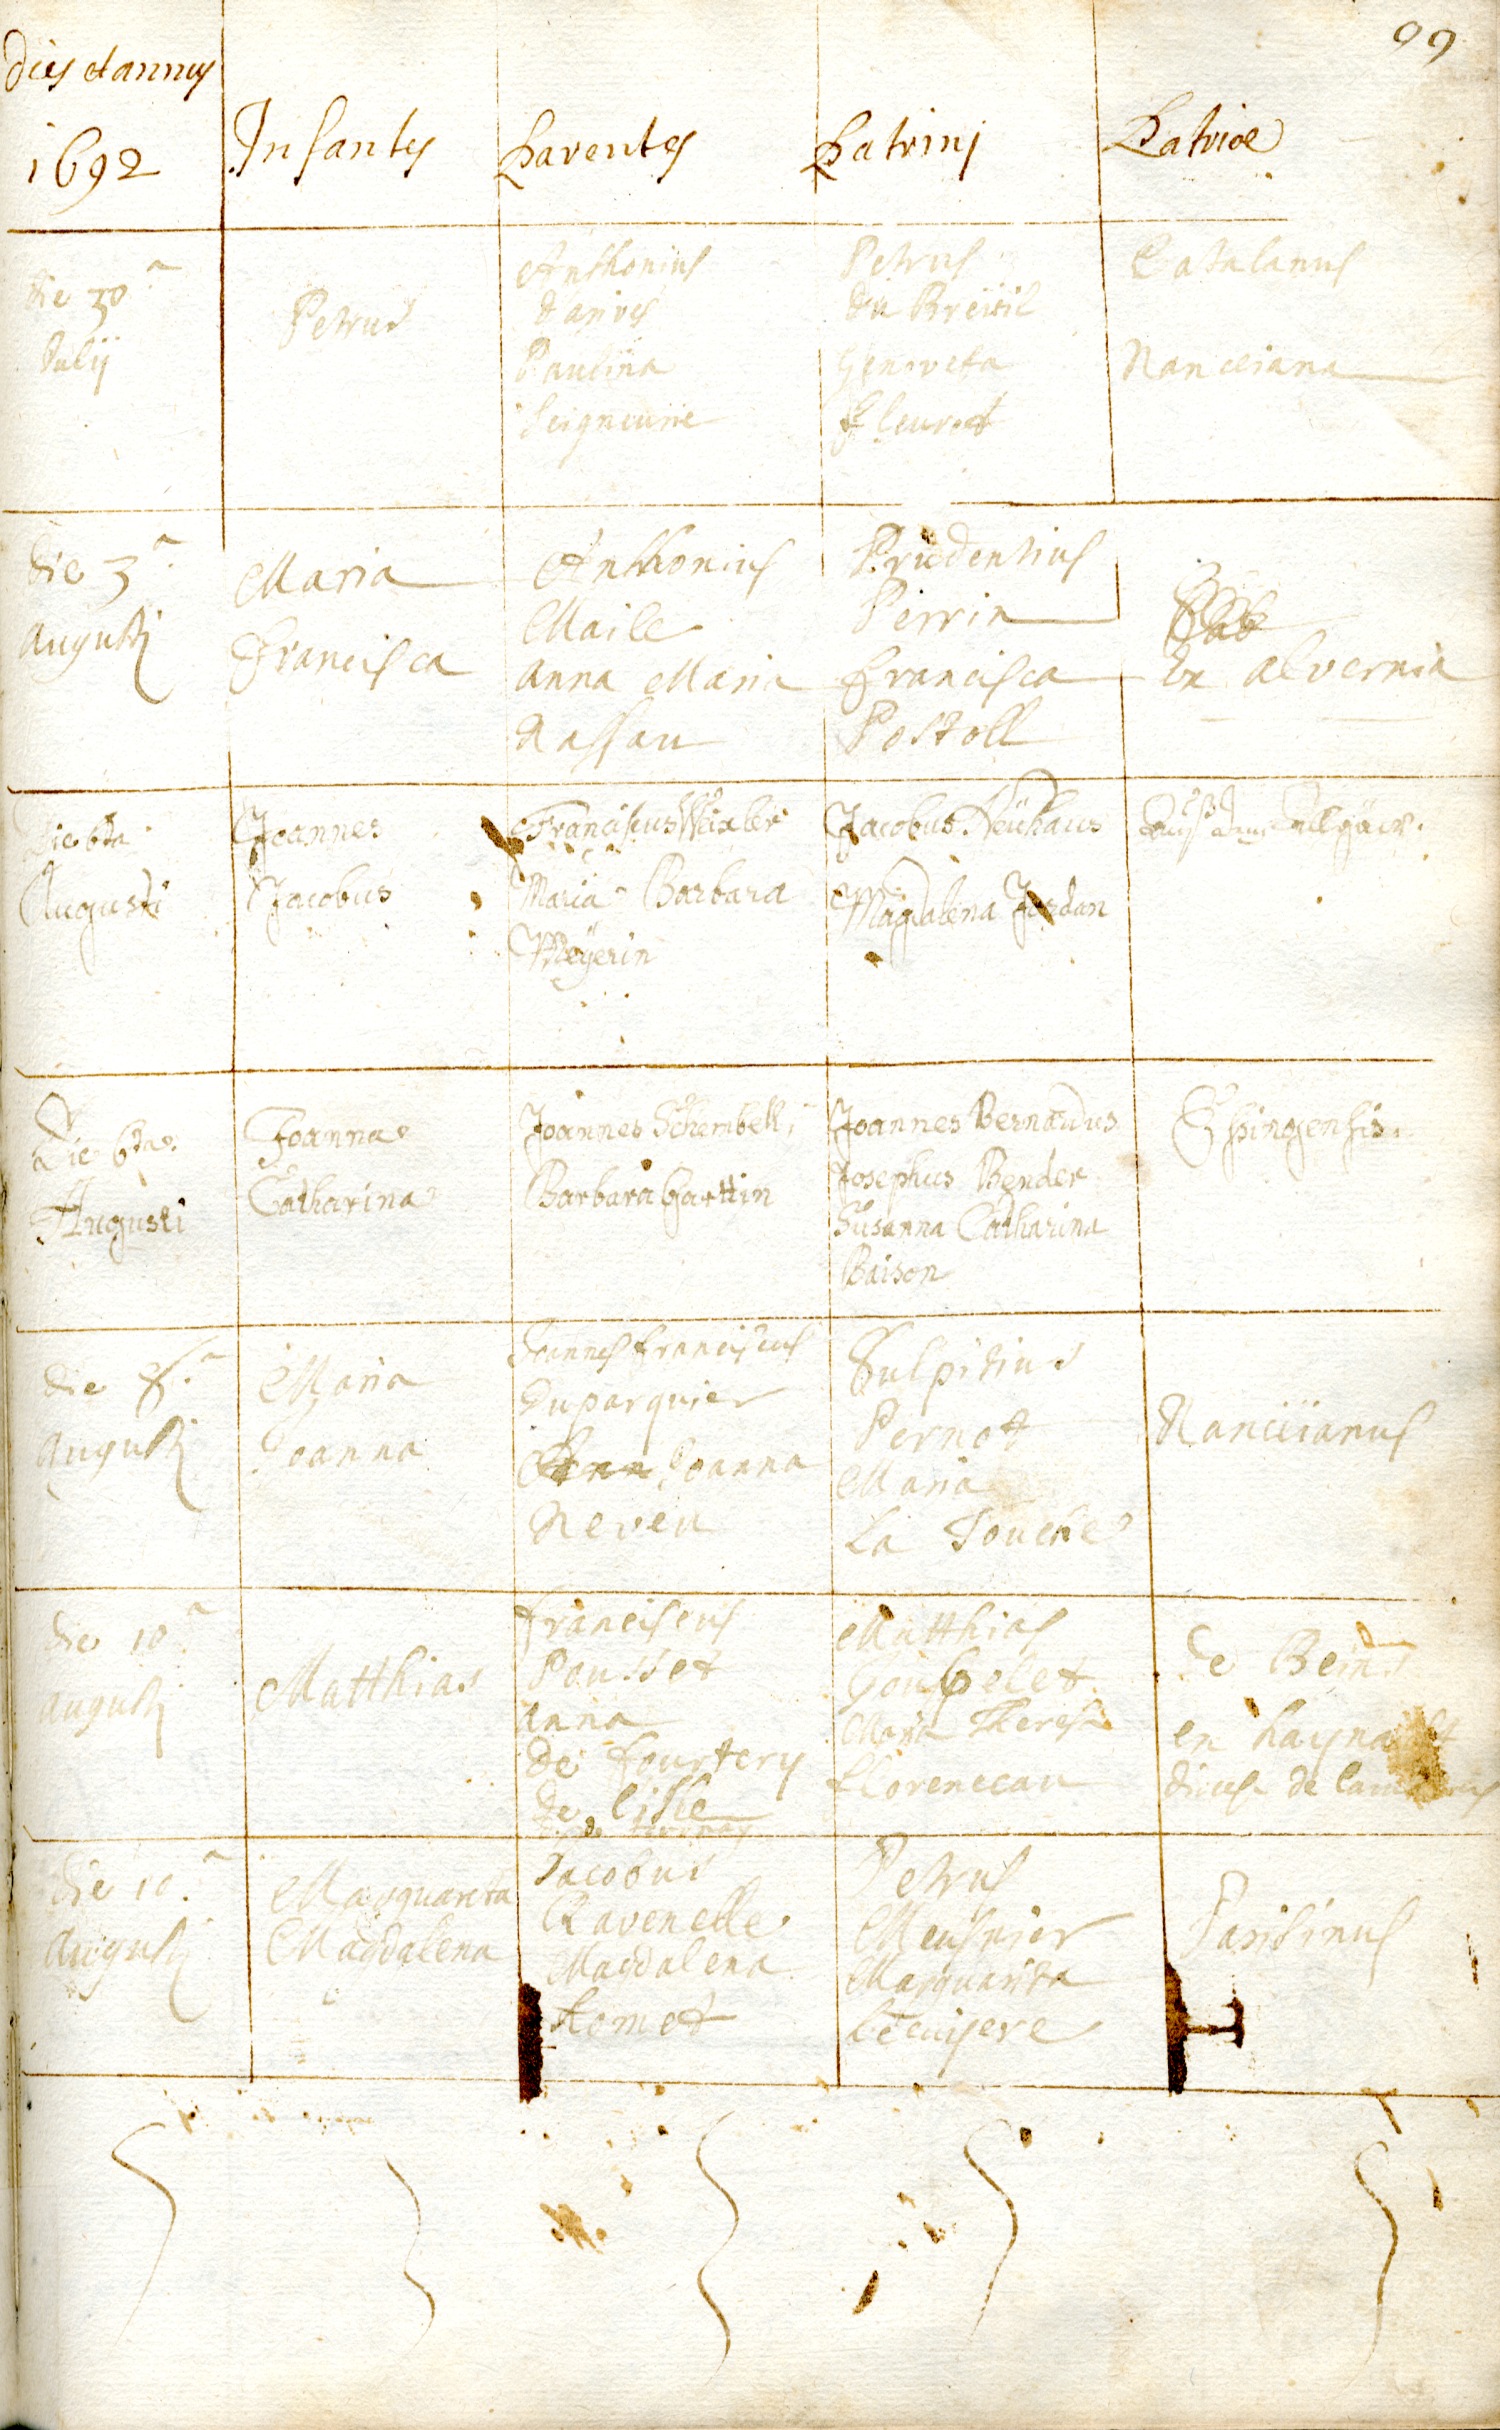 99
dies et annus
1692
Infantes
Parentes
Patrini
Patriae
die 30a
Julij
Petrus
Anthonius
Danves
Paulina
Seigneurie
Petrus
du Breüil
Genovefa
Fleurot
Catalanus
Nanceiana
die 3a
Augusti
Maria
Francisca
Anthonius
Maile
Anna Maria
Nassau
Prudentius
Perrin
Francisca
Postoll
Ex Alvernia
Die 6ta
Augusti
Joannes
Jacobus
Franciscus Weixler
Maria Barbara
Meÿerin
Jacobus Neühaus
Magdalena Jordan
Auß dem Allgäw.
Die 6ta
Augusti
Joanna
Catharina
Joannes Schembell,
Barbara Garttin
Joannes Bernardus
Josephus Bender
Susanna Catharina
Baison
Ehingensis.
die 8a
Augusti
Maria
Joanna
Joannes Franciscus
Duparquier
Anna Joanna
Neveu
Sulpitius
Pernot
Maria
La Touche
Nanceianus
die 10a
Augusti
Matthias
Franciscus
Pousset
Anna
de Fourtery
de Lisle
Matthias
Goupelet
Maria Theresa
Florenceau
de Beins
en haynault
die 10a
Augusti
Marguareta
Magdalena
Jacobus
Ravenelle
Magdalena
Homet
Petrus
Meusnier
Marguarita
Lecuijere
Parisinus